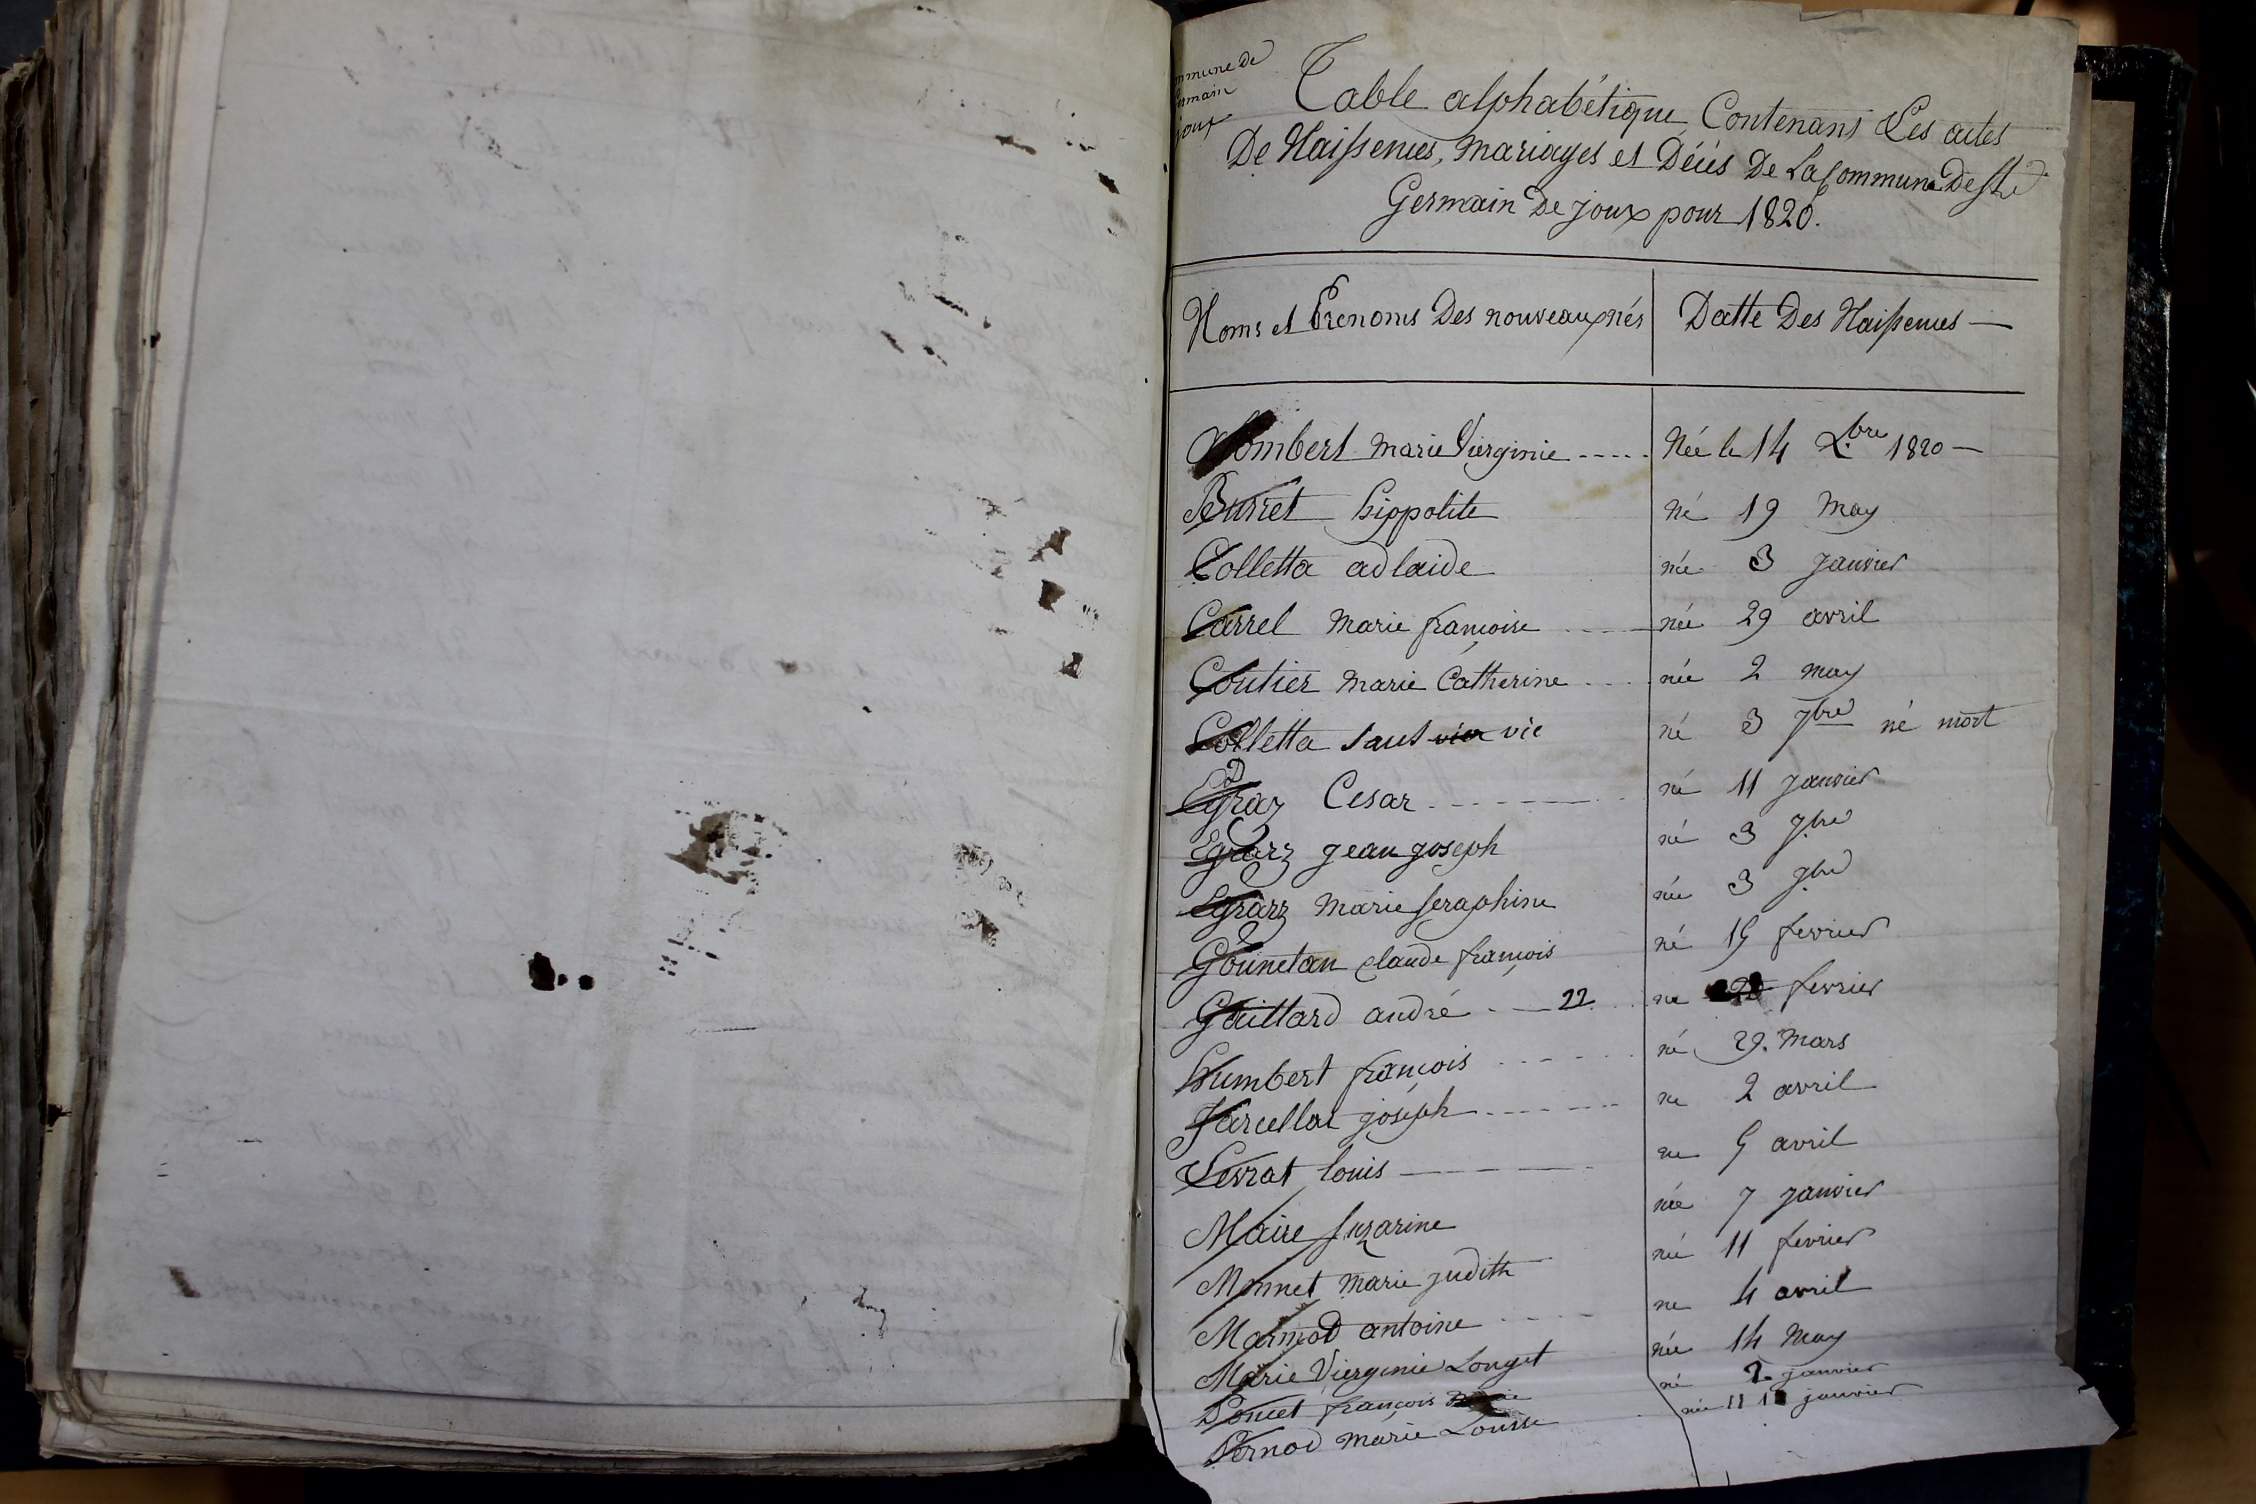 Commune de
Germain
joux
Table alphabétique Contenant Les actes
De Naissences, Mariages et Décés De La Commune De St
Germain De joux pour 1820.
Noms et Prenoms Des nouveaux nés Datte Des Naissences —
ombert Marie Vierginie ..... Née le 14 Xbre 1820 —
Burret hippolite né 19 May
Colletta adlaide née 3 Janvier
Carrel Marie françoise née 29 avril
Coutier Marie Catherine née 2 may
Colletta sans vie né 3 7bre né mort
Egraz Cesar né 11 Janvier
Egrarz jean joseph né 3 7bre
Egrarz Marie Seraphine née 3 9bre
Gounetan claude françois né 15 fevrier
Guittard andré 22 né fevrier
humbert françois né 29 Mars
Jarcellat joséph né 2 avril
Levrat louis né 5 avril
Maire Suzarine née 7 Janvier
Monnet Marie judith née 11 fevrier
Marmod antoine né 4 avril
Marie Vierginie Longet née 14 May
Poncet françois né 2 janvier
Pernod Marie Louise née 11 janvier